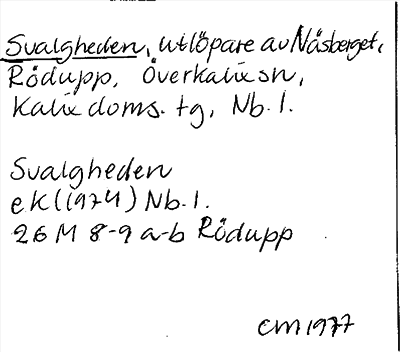 Svalgheden, utlöpare av Näsberget,
Rödupp, Överkalix sn,
Kalix doms. tg, Nb. l.
Svalgheden
ek (1974) Nb. l.
26 M 8-9 a-b Rödupp
CM 1977